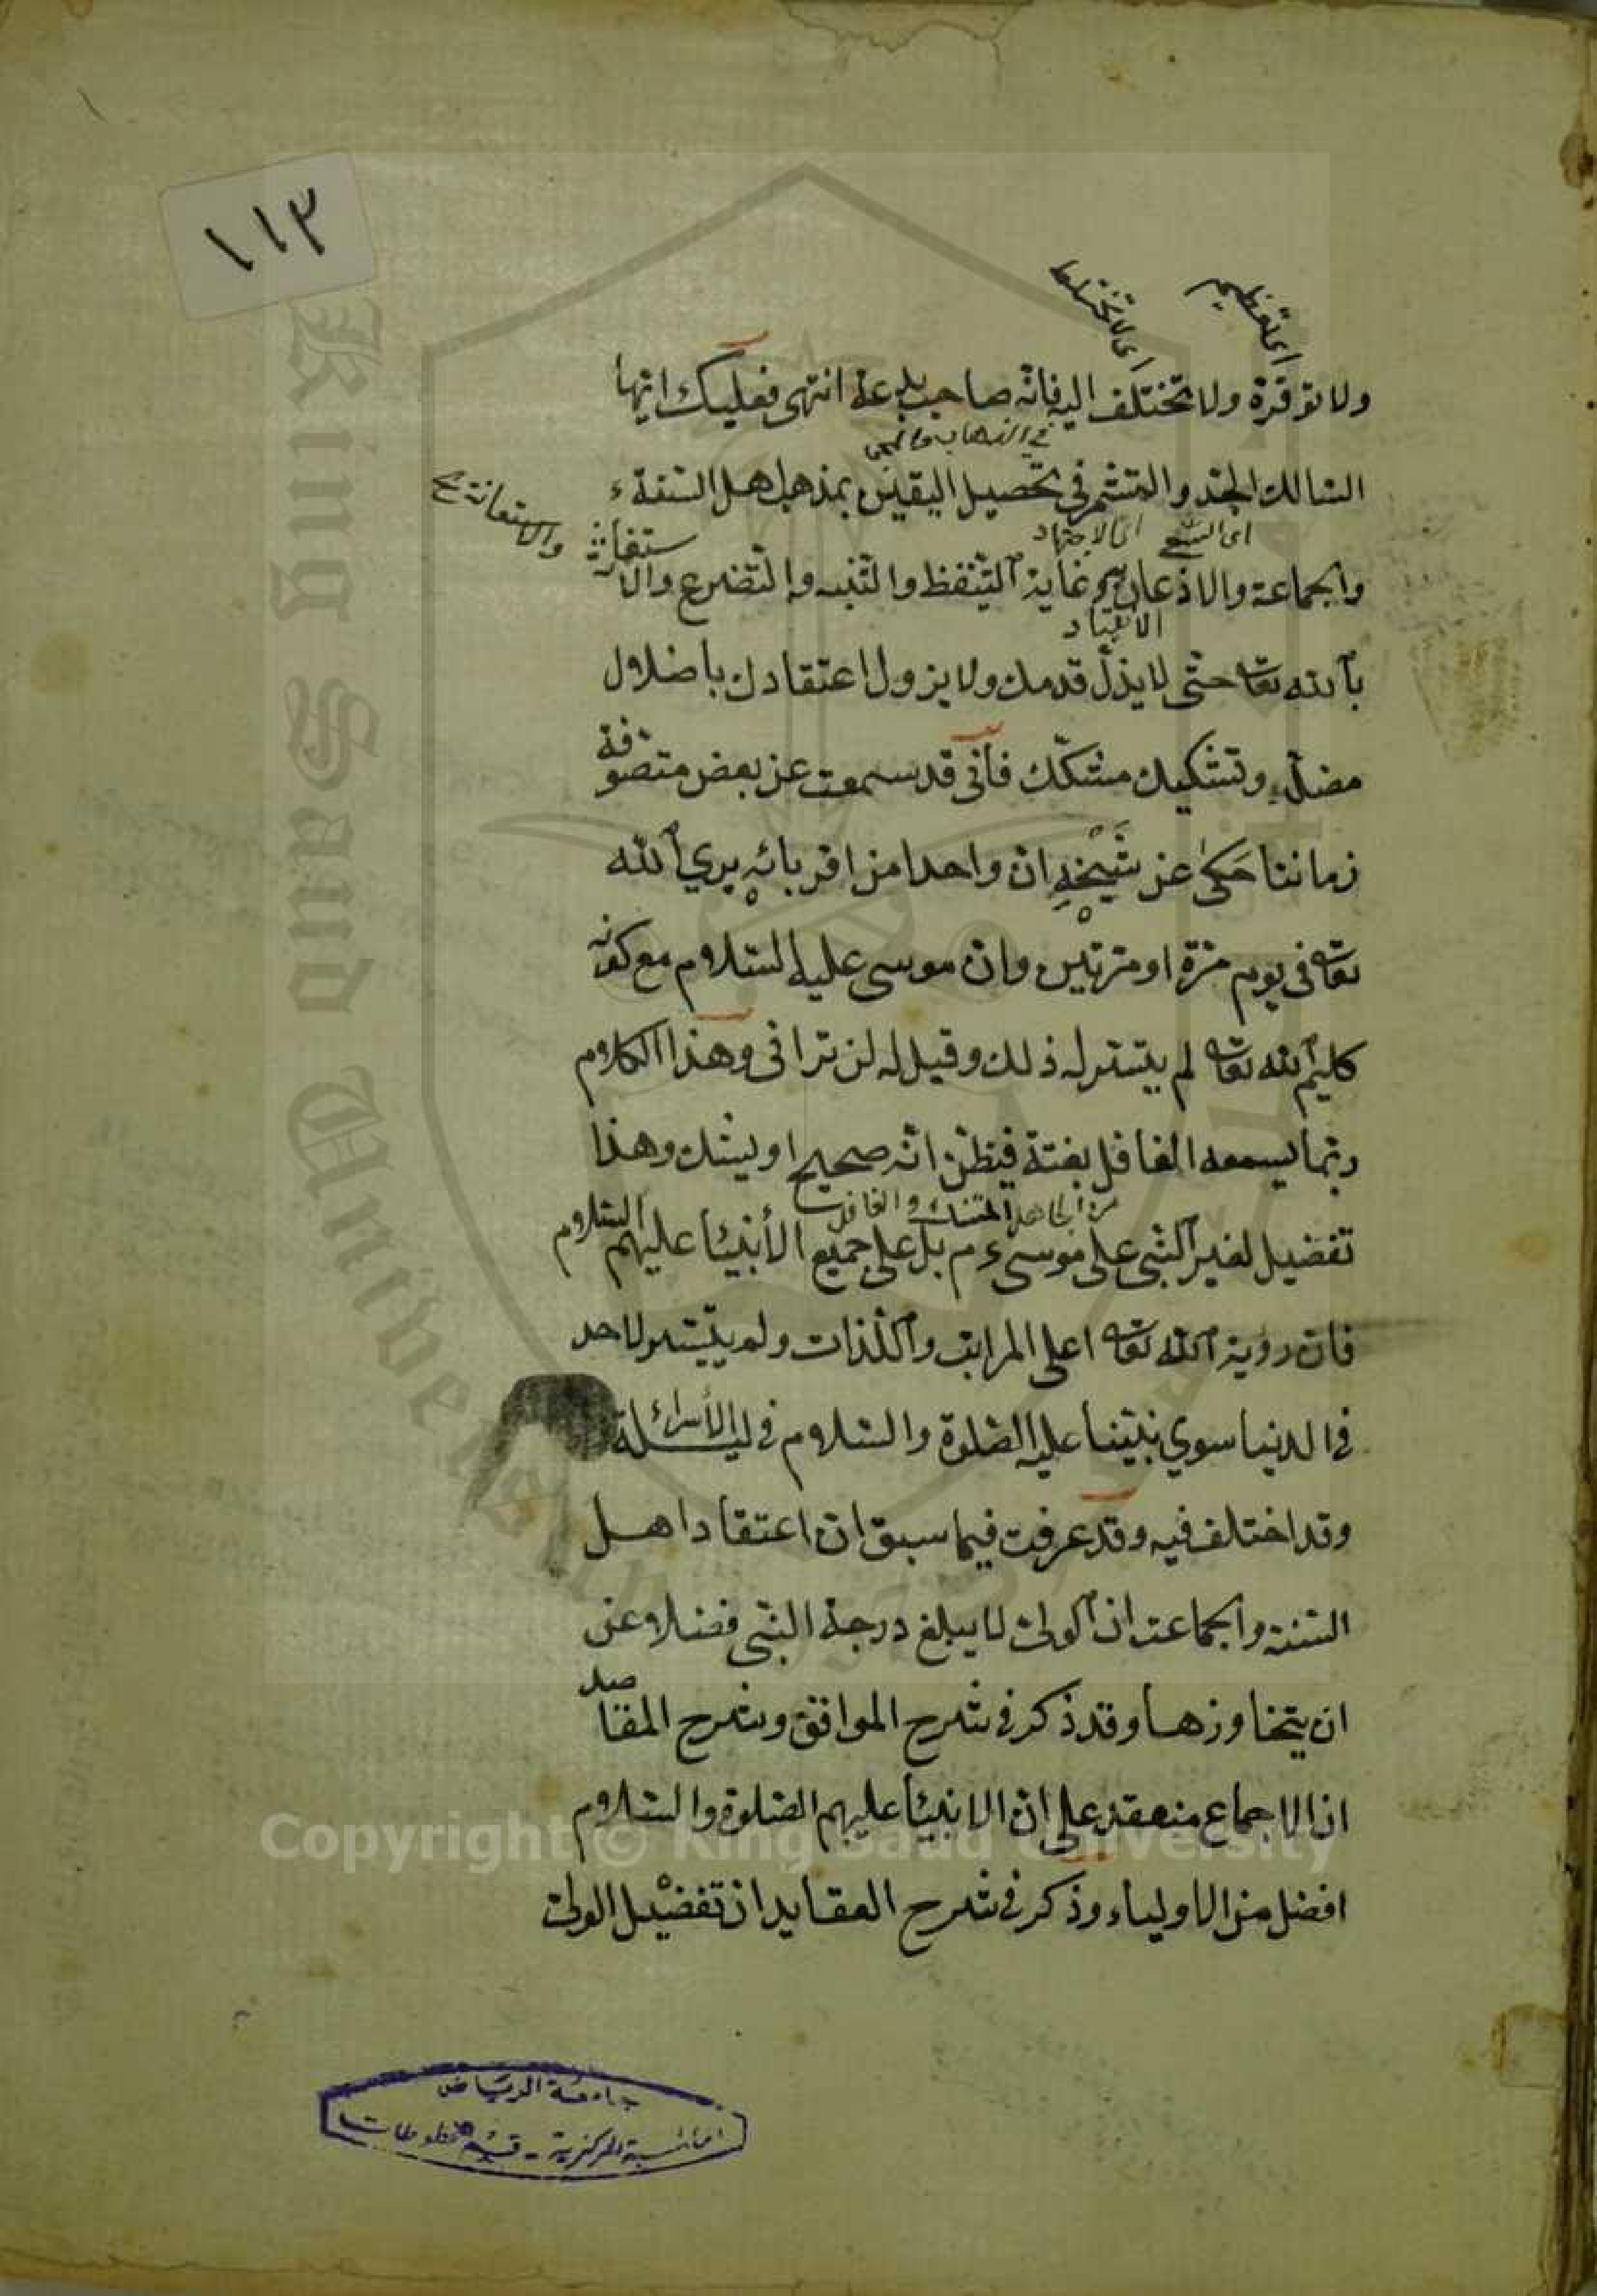 ١١٣
اى لا تعظيم
اى لا تختلط
ولا توقرة ولا تختلف اليه فانه صاحب بدعة انتهى فعليك ايها
فى الذهاب والمجى
السالك المجتهد والمتشمر فى تحصيل اليقين بمذهب اهل السنة
اى السعى اى الاجتهاد
والاستعانة
والجماعة والاذعان به غاية التيقظ والتنبه والتضرع والاستغاثة
الانقياد
بالله تعالى حتى لا يذل قدمك ولا يزول اعتقادك باضلال
مضل وتشكيك مشكك فانى قد سمعت عن بعض متصوفة
زماننا حكى عن شيخه ان واحدا من اقربائه يري الله
تعالى فى يوم مرة او مرتين وان موسى عليه السلام مع كونه
كليم الله تعالى لم يتيسر له ذلك وقيل له لن ترانى وهذا الكلام
ربما يسمعه الغافل بغتة فيظن انه صحيح او يشك وهذا
من الجاهل المتنسك والغافل
تفضيل لغير النبى على موسى ءم بل على جميع الأنبيئا عليهم السلام
فان روية الله تعالى اعلى المراتب والذات ولم يتيسر لاحد
فى الدنيا سوي نبينا عليه الصلوة والسلام فى ليلة الأسرائ
وقد اختلف فيه وقد عرفت فيما سبق ان اعتقاد اهل
السنة والجماعت ان الولى لا يبلغ درجة النبى فضلا عن
ان يتجاوزها وقد ذكر فى شرح المواقف وشرح المقاصد
ان الاجماع منعقد على ان الانبيئا عليهم الصلوة والسلام
افضل من الاولياء وذكر فى شرح العقايد ان تفضيل الولى
جامعة الرياض
المكتبة المركزية - قسم المخطوطات
King Saud University
Copyright © King Saud University